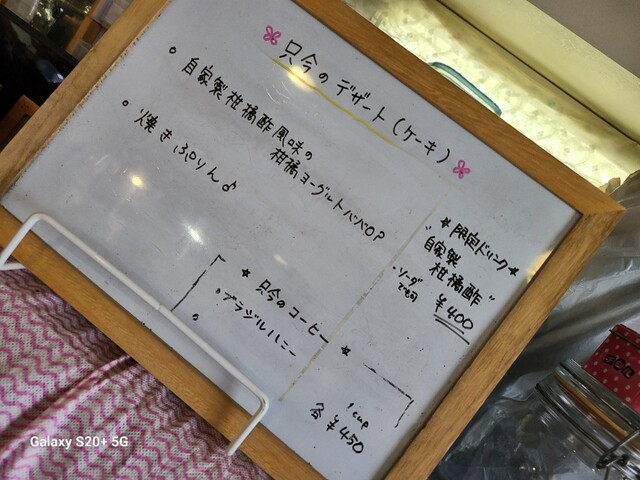 只今の デザート(ケーキ)
自家製柑橘酢風味の
柑橘ヨーグルトババロア
焼きぷりん♪
★限定ドリンク★
"自家製
柑橘酢"
ソーダ
でも可
¥400
★ 只今のコーヒー ★
ブラジルハニー
1cup
各 ¥450
Galaxy S20+ 5G